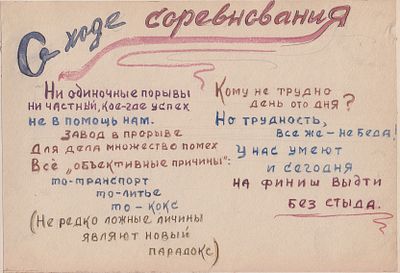 О ходе соревнования
Ни одиночные порывы
ни частный, кое-где успех
не в помощь нам.
Завод в прорыве
Для дела множество помех
Всё „объективные причины":
то-транспорт
то-литье
то-кокс
(Не редко ложные личины
являют новый
парадокс)
Кому не трудно
день ото дня?
Но трудность,
все же-не беда!
У нас умеют
и сегодня
на финиш выдти
без стыда.